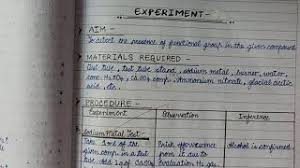 EXPERIMENT-
AIM -
To detect the presence of functional group in the given compound
MATERIALS REQUIRED -
test tube, test tube stand, sodium metal, burner, water,
comp., Ammonium nitrate, glacial acetic
acid etc.
PROCEDURE -
Experiment Observation Inference
Sodium Metal Test-
Take 1 ml of the Brisk effervescence Alcohol is confirmed
given comp. in a test from it due to
tube. Add evolution H₂ gas.